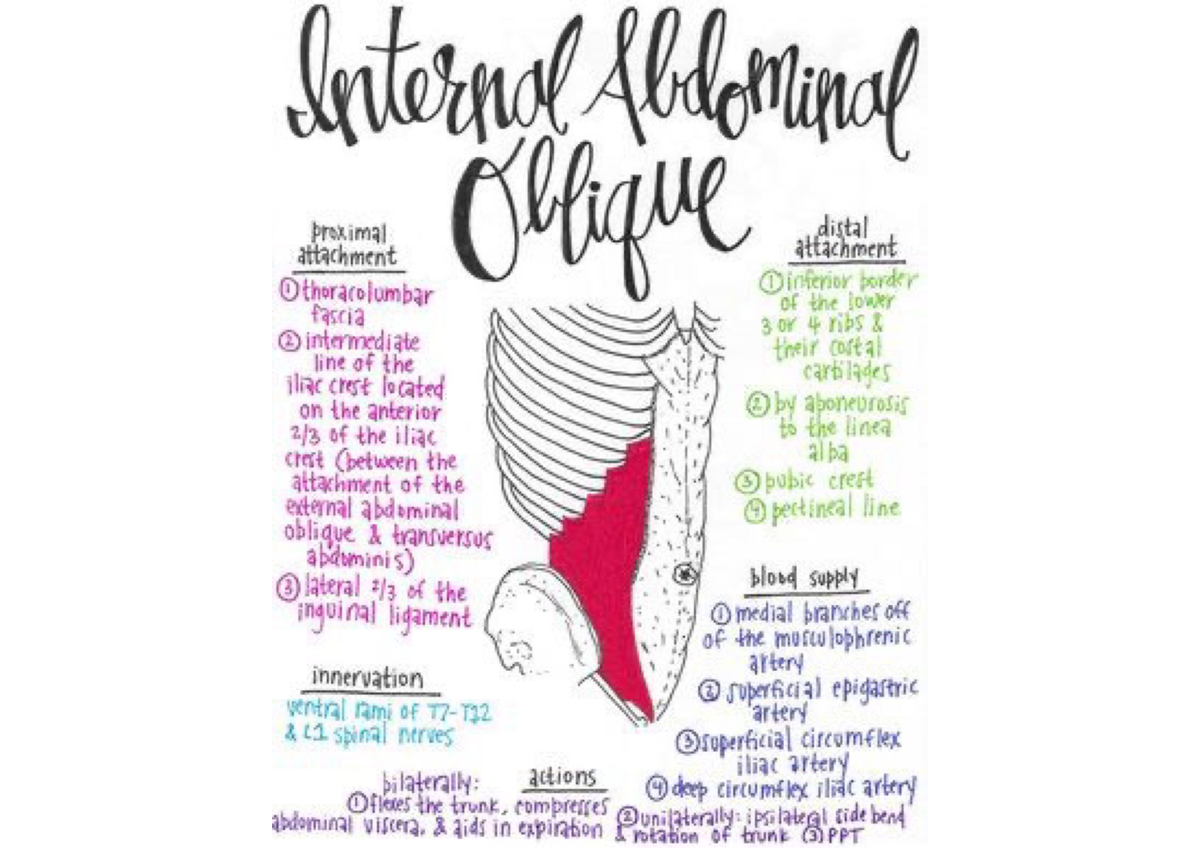 Internal Abdominal
Oblique
proximal
attachment
① thoracolumbar
fascia
② intermediate
line of the
iliac crest located
on the anterior
2/3 of the iliac
crest (between the
attachment of the
external abdominal
oblique & transversus
abdominis)
③ lateral 2/3 of the
inguinal ligament
innervation
ventral rami of T7-T12
& L1 spinal nerves
distal
attachment
① inferior border
of the lower
3 or 4 ribs &
their costal
cartilages
② by aponeurosis
to the linea
alba
③ pubic crest
④ pectineal line
blood supply
① medial branches off
of the musculophrenic
artery
② superficial epigastric
artery
③ superficial circumflex
iliac artery
④ deep circumflex iliac artery
actions
bilaterally:
① flexes the trunk, compresses
abdominal viscera, & aids in expiration
② unilaterally: ipsilateral side bend
& rotation of trunk ③ PPT